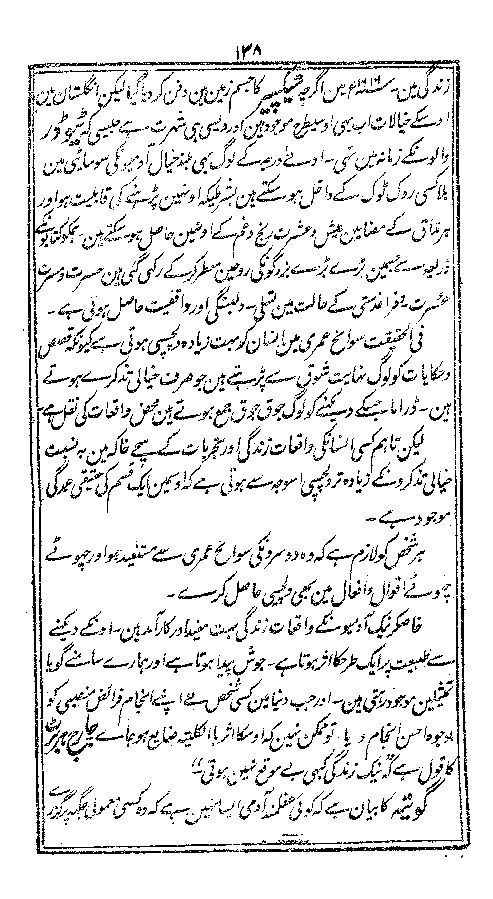 ۱۳۸
زندگی مین۔ سنہ ۱۶۱۶ء مین اگرچہ شیکسپیر کا جسم زمین مین دفن کر دیا گیا لیکن انگلستان مین
اوسکے خیالات اب بھی اوسیطرح موجود ہین اور ویسی ہی شہرت ہے جیسی کہ ٹیوڈور
والونکے زمانہ مین تھی۔ ادنے درجہ کے لوگ بھی بلند خیال آدمیونکی سوسایٹی مین
بلا کسی روک ٹوک کے داخل ہو سکتے ہین بشرطیکہ اونمین پڑہنے کی قابلیت ہو اور
ہر مذاق کے مضامین عیش و عشرت رنج و غم کے اونمین حاصل ہو سکتے ہین۔ جنکو کتابونکے
ذریعہ سے جنمین بڑے بڑے بزرگونکی روحین معطر کر کے رکھی گئی ہین مسرت و
عشرت و فراغدستی کے حالت مین تسلی۔ دلبستگی اور واقفیت حاصل ہوتی ہے۔
فی الحقیقت سوانح عمری مین انسان کو بہت زیادہ دلچسپی ہوتی ہے کیونکہ قصص
و حکایات کو لوگ نہایت شوق سے پڑہتے ہین جو صرف خیالی تذکرے ہوتے
ہین۔ ڈراما جسکے دیکھنے کو لوگ جوق جوق جمع ہوتے ہین محض واقعات کی نقل ہے
لیکن تاہم کسی انسانکی واقعات زندگی اور تجربات کے سچے خاکہ مین بہ نسبت
خیالی تذکرونکے زیادہ تر دلچسپی اسوجہ سے ہوتی ہے کہ اوسمین ایک قسم کی حقیقی عمدگی
موجود ہے۔
ہر شخص کو لازم ہے کہ وہ دوسرونکی سوانح عمری سے مستفید ہو اور چھوٹے
چھوٹے اقوال و افعال مین بھی دلچسپی حاصل کرے۔
خاصکر نیک آدمیونکے واقعات زندگی بہت مفید اور کارآمد ہین۔ اونکے دیکھنے
سے طبیعت پر ایک طرحکا اثر ہوتا ہے۔ جوش پیدا ہوتا ہے اور ہمارے سامنے گویا
تمثیلین موجود رہتی ہین۔ اور جب دنیا مین کسی شخص نے اپنے انجام فرائض منصبی کو
بوجوہ احسن انجام دیا۔ تو ممکن نہین کہ اوسکا اثر بالکلیتہ ضایع ہو جاے جارج ہربرٹ
کا قول ہے کہ "نیک زندگی کبھی بے موقع نہین ہوتی"
گوئٹیھ کا بیان ہے کہ کوئی عقلمند آدمی ایسا نہین ہے کہ وہ کسی معمولی جگہ پر گزرے